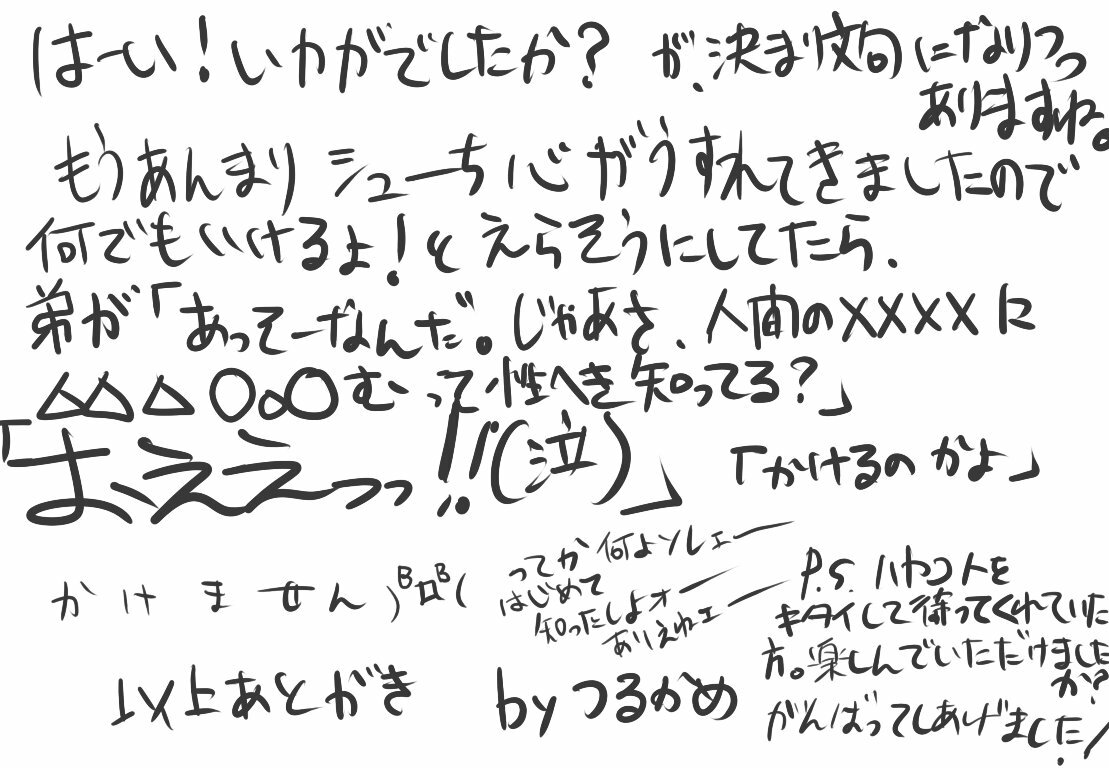 はーい！いかがでしたか？ が、決まり文句になりつつ
ありますね。
もうあんまりシューち心がうすれてきましたので
何でもいけるよ！とえらそうにしてたら、
弟が「あってーなんだ。じゃあさ、人間の××××に
△△△○○○むって性へき知ってる？」
「おええっっ!!(泣)」「かけるのかよ」
かけません
ってか何よソレェー
はじめて
知ったしよォー
ありえねェー
P.S. ハヤコトを
キタイして待ってくれていた
方。楽しんでいただけました
か？
がんばってしあげました！
以上あとがき by つるかめ